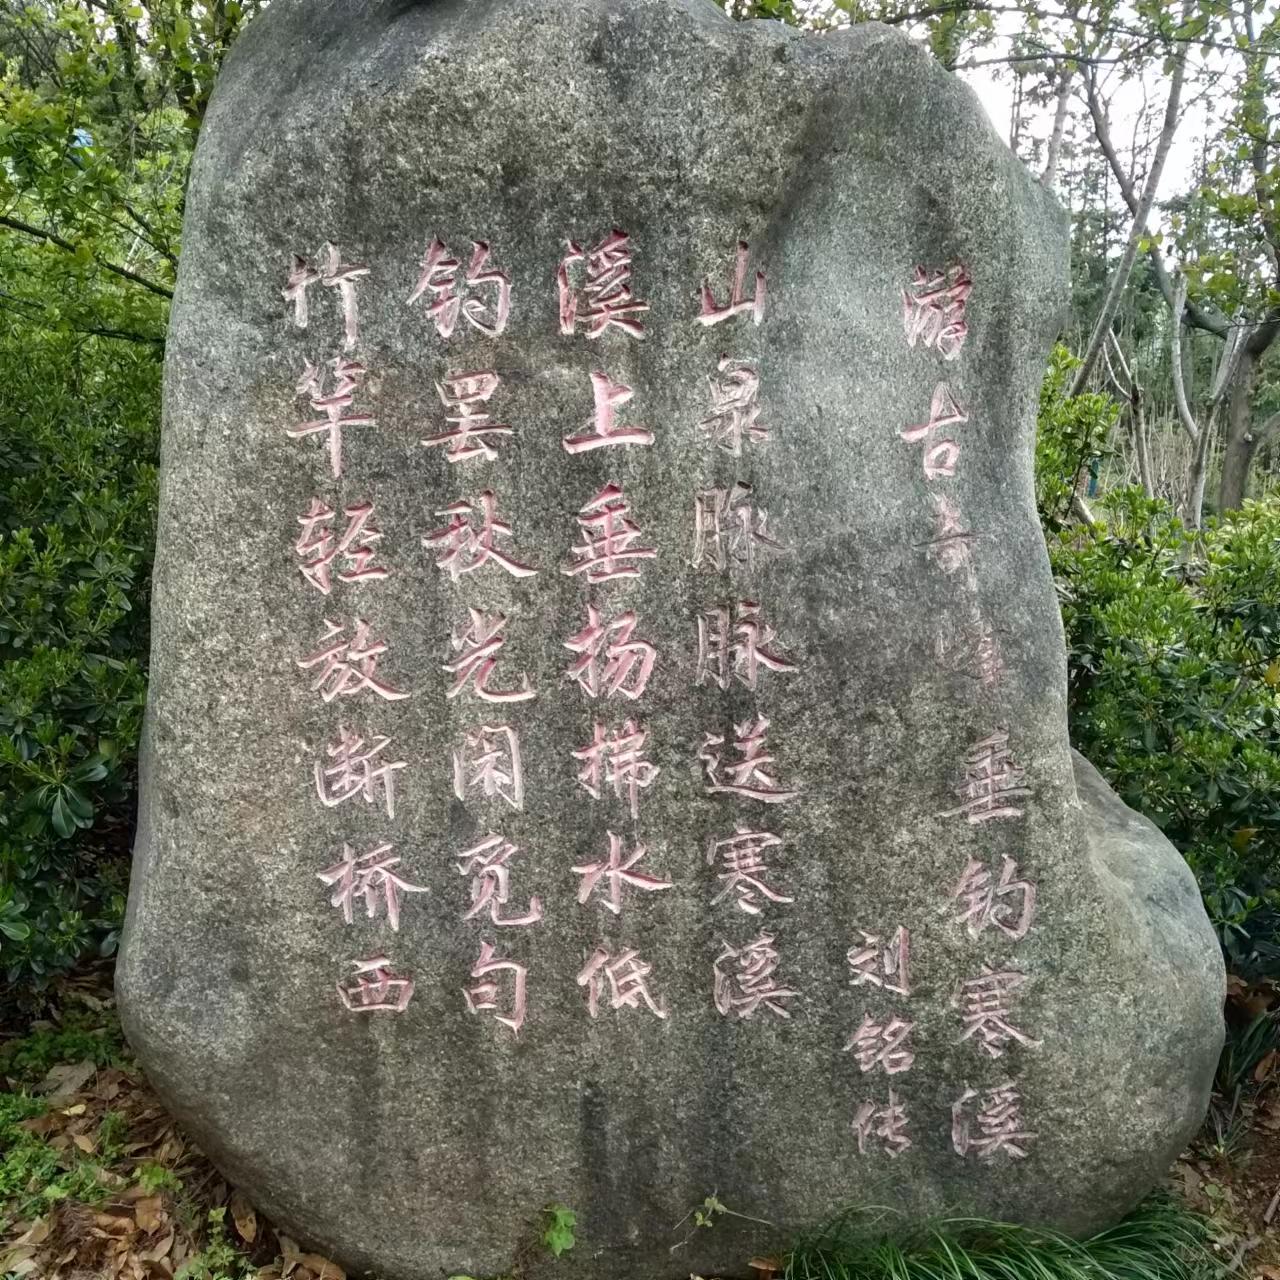 游古奇峰 垂钓寒溪
刘铭传
山泉脉脉送寒溪
溪上垂扬拂水低
钓罢秋光闲觅句
竹竿轻放断桥西